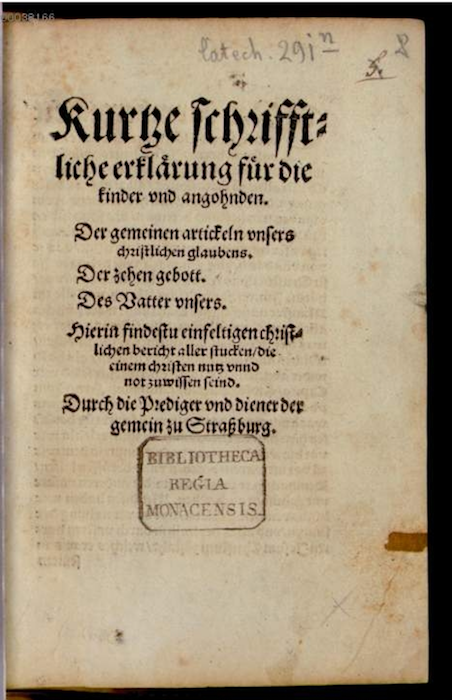 00038166
Catech. 291 n
8
Kurtze schrifft⸗
liche erklårung für die
kinder vnd angohnden.
Der gemeinen artickeln vnsers
christlichen glaubens.
Der zehen gebott.
Des Vatter vnsers.
Hierin findestu einfeltigen christ⸗
lichen bericht aller stucken/die
einem christen nutz vnnd
not zuwissen seind.
Durch die Prediger vnd diener der
gemein zu Straßburg.
BIBLIOTHECA
REGIA
MONACENSIS.